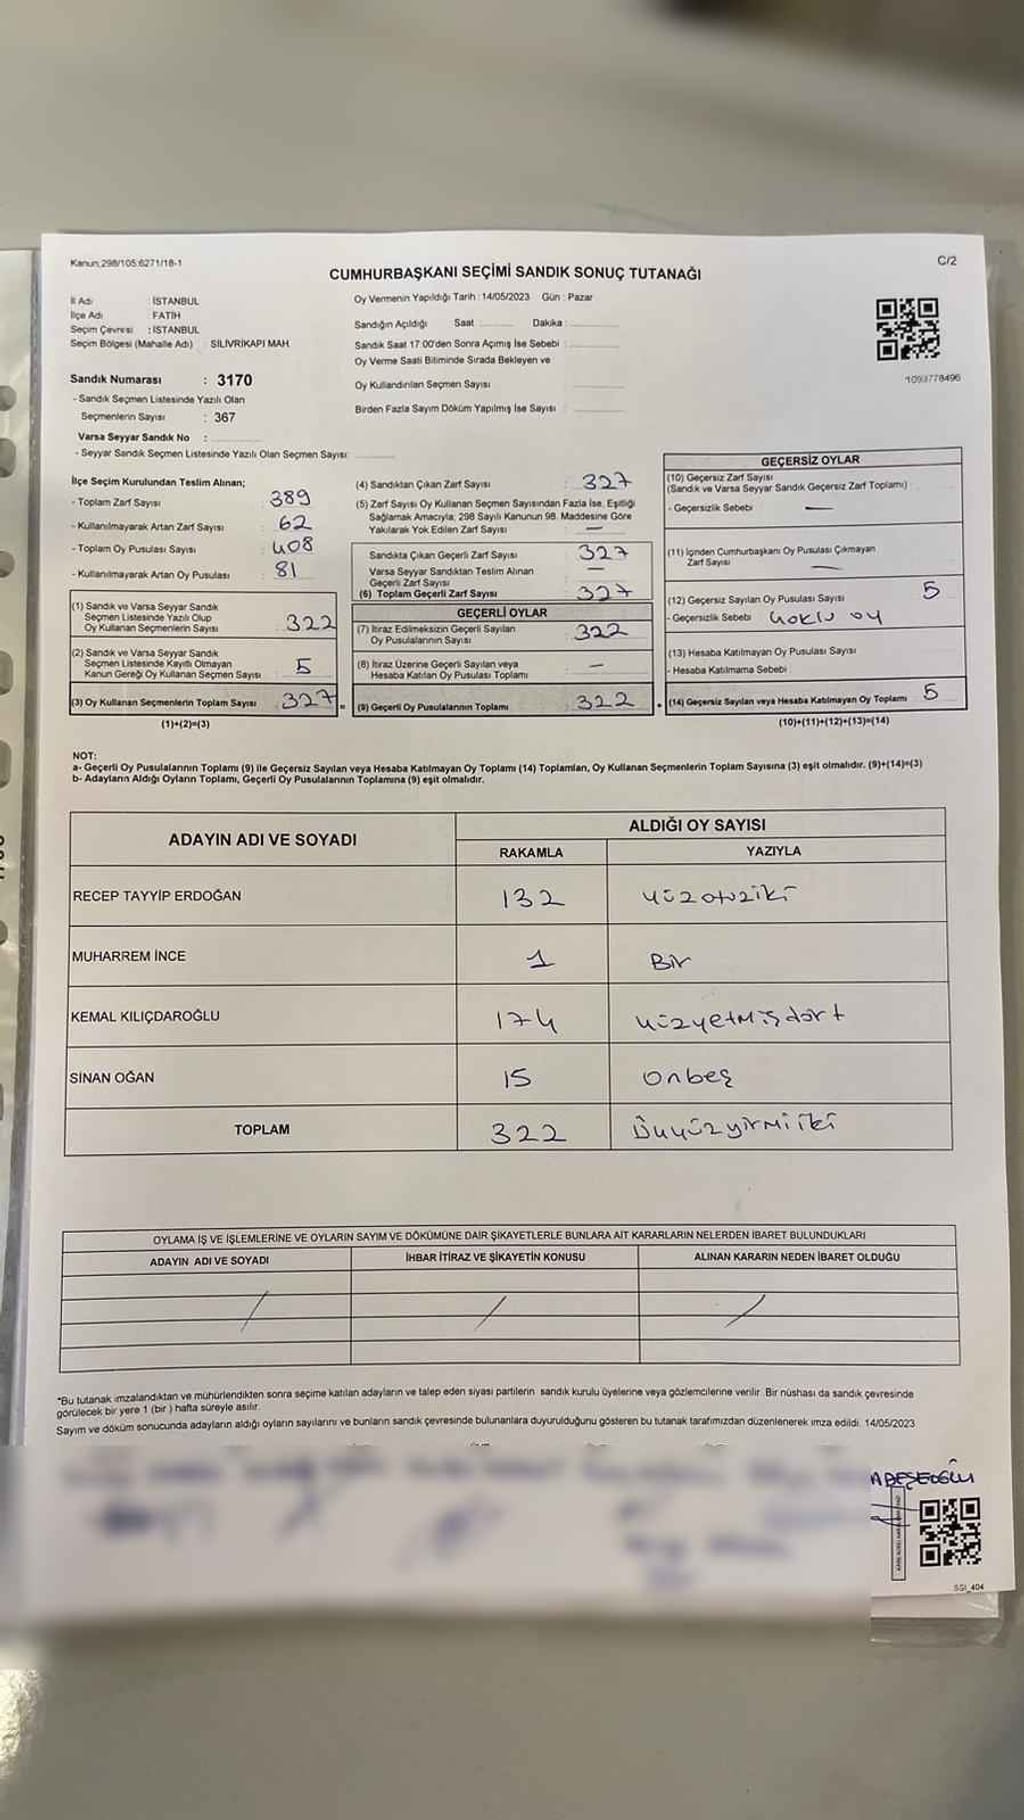 Kanun;298/105;6271/18-1
C/2
CUMHURBAŞKANI SEÇİMİ SANDIK SONUÇ TUTANAĞI
İl Adı : İSTANBUL
İlçe Adı : FATİH
Seçim Çevresi : İSTANBUL
Seçim Bölgesi (Mahalle Adı) SİLİVRİKAPI MAH.
Sandık Numarası : 3170
- Sandık Seçmen Listesinde Yazılı Olan
Seçmenlerin Sayısı : 367
Varsa Seyyar Sandık No :
- Seyyar Sandık Seçmen Listesinde Yazılı Olan Seçmen Sayısı:
Oy Vermenin Yapıldığı Tarih : 14/05/2023 Gün : Pazar
Sandığın Açıldığı Saat Dakika :
Sandık Saat 17:00'den Sonra Açılmış İse Sebebi :
Oy Verme Saati Bitiminde Sırada Bekleyen ve
Oy Kullandırılan Seçmen Sayısı
Birden Fazla Sayım Döküm Yapılmış İse Sayısı
1093778496
İlçe Seçim Kurulundan Teslim Alınan;
- Toplam Zarf Sayısı : 389
- Kullanılmayarak Artan Zarf Sayısı : 62
- Toplam Oy Pusulası Sayısı : 408
- Kullanılmayarak Artan Oy Pusulası : 81
(1) Sandık ve Varsa Seyyar Sandık
Seçmen Listesinde Yazılı Olup
Oy Kullanan Seçmenlerin Sayısı : 322
(2) Sandık ve Varsa Seyyar Sandık
Seçmen Listesinde Kayıtlı Olmayan
Kanun Gereği Oy Kullanan Seçmen Sayısı : 5
(3) Oy Kullanan Seçmenlerin Toplam Sayısı : 327
(1)+(2)=(3)
(4) Sandıktan Çıkan Zarf Sayısı : 327
(5) Zarf Sayısı Oy Kullanan Seçmen Sayısından Fazla İse, Eşitliği
Sağlamak Amacıyla, 298 Sayılı Kanunun 98. Maddesine Göre
Yakılarak Yok Edilen Zarf Sayısı : —
Sandıkta Çıkan Geçerli Zarf Sayısı : 327
Varsa Seyyar Sandıktan Teslim Alınan
Geçerli Zarf Sayısı : —
(6) Toplam Geçerli Zarf Sayısı : 327
GEÇERLİ OYLAR
(7) İtiraz Edilmeksizin Geçerli Sayılan
Oy Pusulalarının Sayısı : 322
(8) İtiraz Üzerine Geçerli Sayılan veya
Hesaba Katılan Oy Pusulası Toplamı : —
(9) Geçerli Oy Pusulalarının Toplamı : 322
GEÇERSİZ OYLAR
(10) Geçersiz Zarf Sayısı
(Sandık ve Varsa Seyyar Sandık Geçersiz Zarf Toplamı) :
- Geçersizlik Sebebi —
(11) İçinden Cumhurbaşkanı Oy Pusulası Çıkmayan
Zarf Sayısı —
(12) Geçersiz Sayılan Oy Pusulası Sayısı : 5
- Geçersizlik Sebebi Çoklu oy
(13) Hesaba Katılmayan Oy Pusulası Sayısı
- Hesaba Katılmama Sebebi
(14) Geçersiz Sayılan veya Hesaba Katılmayan Oy Toplamı : 5
(10)+(11)+(12)+(13)=(14)
NOT:
a- Geçerli Oy Pusulalarının Toplamı (9) ile Geçersiz Sayılan veya Hesaba Katılmayan Oy Toplamı (14) Toplamları, Oy Kullanan Seçmenlerin Toplam Sayısına (3) eşit olmalıdır. (9)+(14)=(3)
b- Adayların Aldığı Oyların Toplamı, Geçerli Oy Pusulalarının Toplamına (9) eşit olmalıdır.
ADAYIN ADI VE SOYADI
ALDIĞI OY SAYISI
RAKAMLA YAZIYLA
RECEP TAYYİP ERDOĞAN 132 Yüzotuziki
MUHARREM İNCE 1 Bir
KEMAL KILIÇDAROĞLU 174 Yüzyetmişdört
SİNAN OĞAN 15 Onbeş
TOPLAM 322 Üçyüzyirmiiki
OYLAMA İŞ VE İŞLEMLERİNE VE OYLARIN SAYIM VE DÖKÜMÜNE DAİR ŞİKAYETLERLE BUNLARA AİT KARARLARIN NELERDEN İBARET BULUNDUKLARI
ADAYIN ADI VE SOYADI İHBAR İTİRAZ VE ŞİKAYETİN KONUSU ALINAN KARARIN NEDEN İBARET OLDUĞU
*Bu tutanak imzalandıktan ve mühürlendikten sonra seçime katılan adayların ve talep eden siyasi partilerin sandık kurulu üyelerine veya gözlemcilerine verilir. Bir nüshası da sandık çevresinde
görülecek bir yere 1 (bir ) hafta süreyle asılır.
Sayım ve döküm sonucunda adayların aldığı oyların sayılarını ve bunların sandık çevresinde bulunanlara duyurulduğunu gösteren bu tutanak tarafımızdan düzenlenerek imza edildi. 14/05/2023
SGI_404